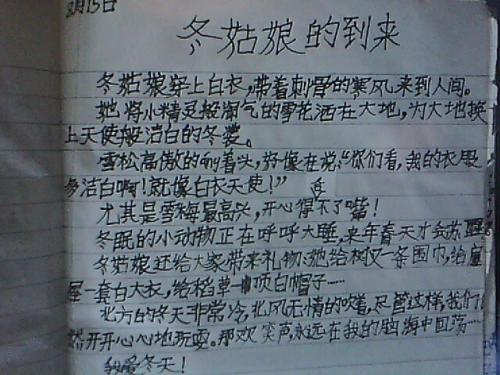 8月15日
冬姑娘的到来
冬姑娘穿上白衣，带着刺骨的寒风来到人间。
她将小精灵般淘气的雪花洒在大地，为大地换
上天使般洁白的冬装。
雪松高傲的向着头，好像在说：“你们看，我的衣服
多洁白啊！就像白衣天使！”
尤其是雪梅最高兴，开心得合不了嘴！
冬眠的小动物正在呼呼大睡，来年春天才会苏醒
冬姑娘还给大家带来礼物：她给树仅一条围巾，给屋
一套白大衣，给稻草一顶白帽子……
北方的冬天非常冷，北风无情的吹着，尽管这样，我们
然开开心心地玩耍。那欢笑声，永远在我的脑海中回荡…
我爱冬天！